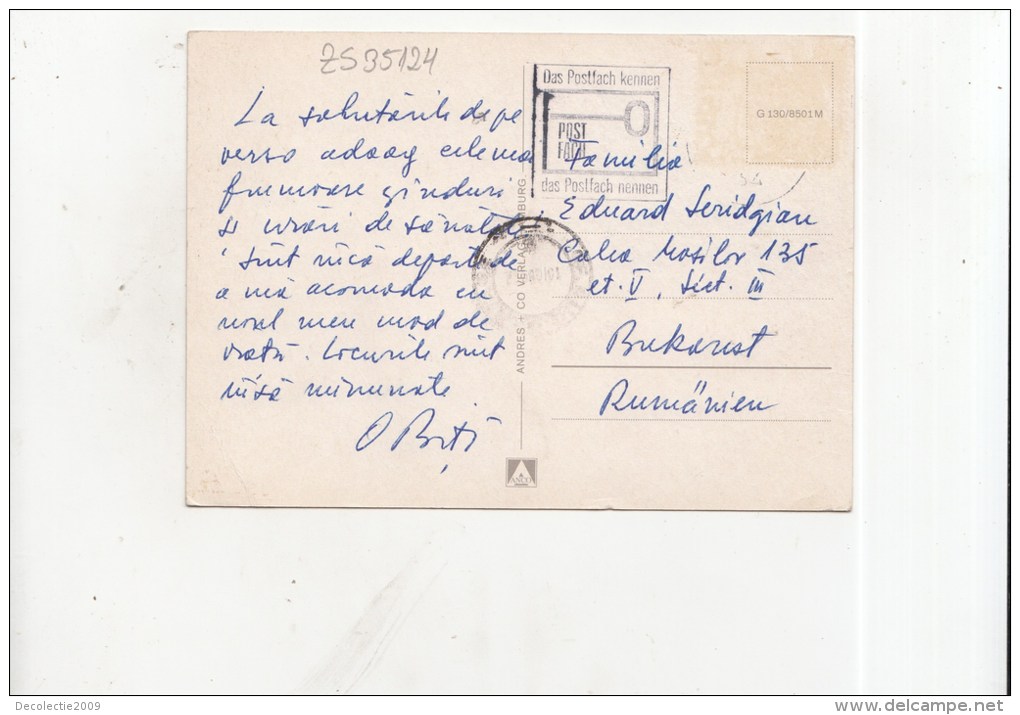 ZS35124
La salutările de pe
verso adaog cele mai
frumoase gînduri
și urări de sănătate
sînt încă departe de
a mă acomoda cu
noul meu mod de
viață. Locurile sînt
însă minunate
Das Postfach kennen
POST
FACH
das Postfach nennen
G 130/8501 M
ANDRES + CO VERLAG
ANCO
Familia
Eduard Seridgian
Calea Moșilor 135
et. V, Sect. III
Bukarest
Rumänien
Decolectie2009
www.delcampe.net